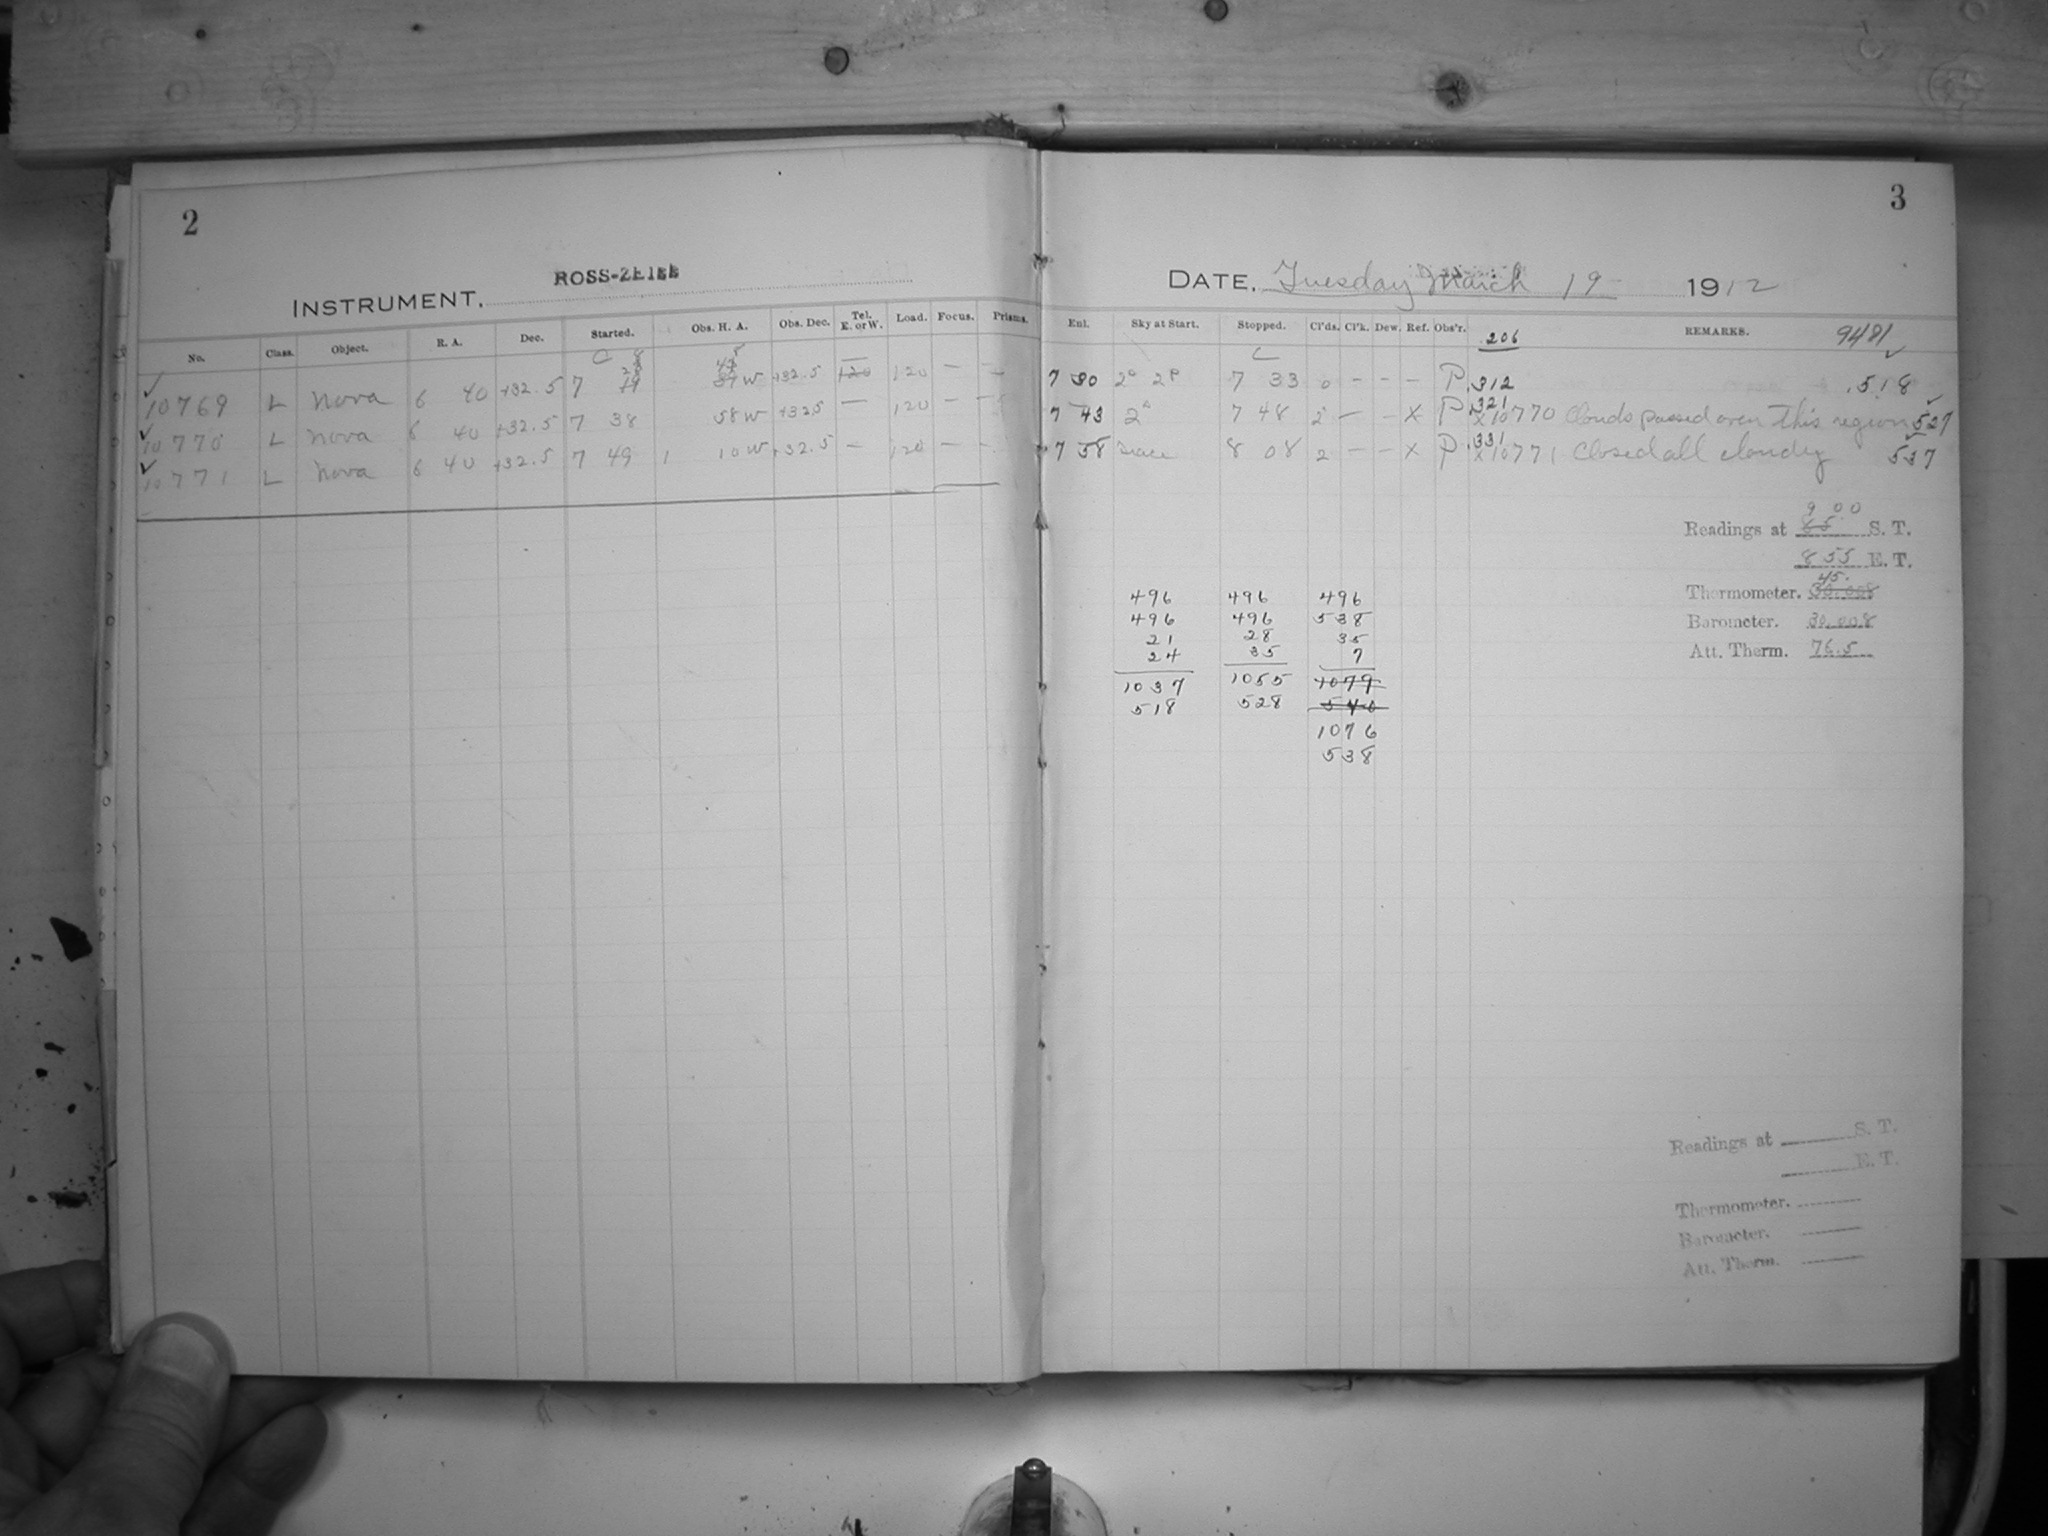 2
INSTRUMENT. ROSS-ZEISS
No. Class. Object. R. A. Dec. Started. Obs. H. A. Obs. Dec. Tel. E. or W. Load. Focus. Prisms.
10769 L Nova 6 40 +32.5 7 W +32.5 120 120 — —
10770 L Nova 6 40 +32.5 7 38 58 W +32.5 — 120 — —
10771 L Nova 6 40 +32.5 7 49 1 10 W +32.5 — 120 — —
3
DATE. Tuesday March 19 1912
Enl. Sky at Start. Stopped. Cl'ds. Cl'k. Dew. Ref. Obs'r. 206 REMARKS. 9481
7 30 7 33 0 — — — P .312 .518
7 43 7 48 2 — — X P .321 X10770 Clouds passed over this region 527
7 58 8 08 2 — — X P .331 X10771 Closed all cloudy 537
9 00
Readings at 85 S. T.
8 55 E. T.
45.
Thermometer. 30.008
Barometer. 30.008
Att. Therm. 76.5
496 496 496
496 496 538
21 28 35
24 35 7
1037 1055 1079
518 528 540
1076
538
Readings at S. T.
E. T.
Thermometer.
Barometer.
Att. Therm.